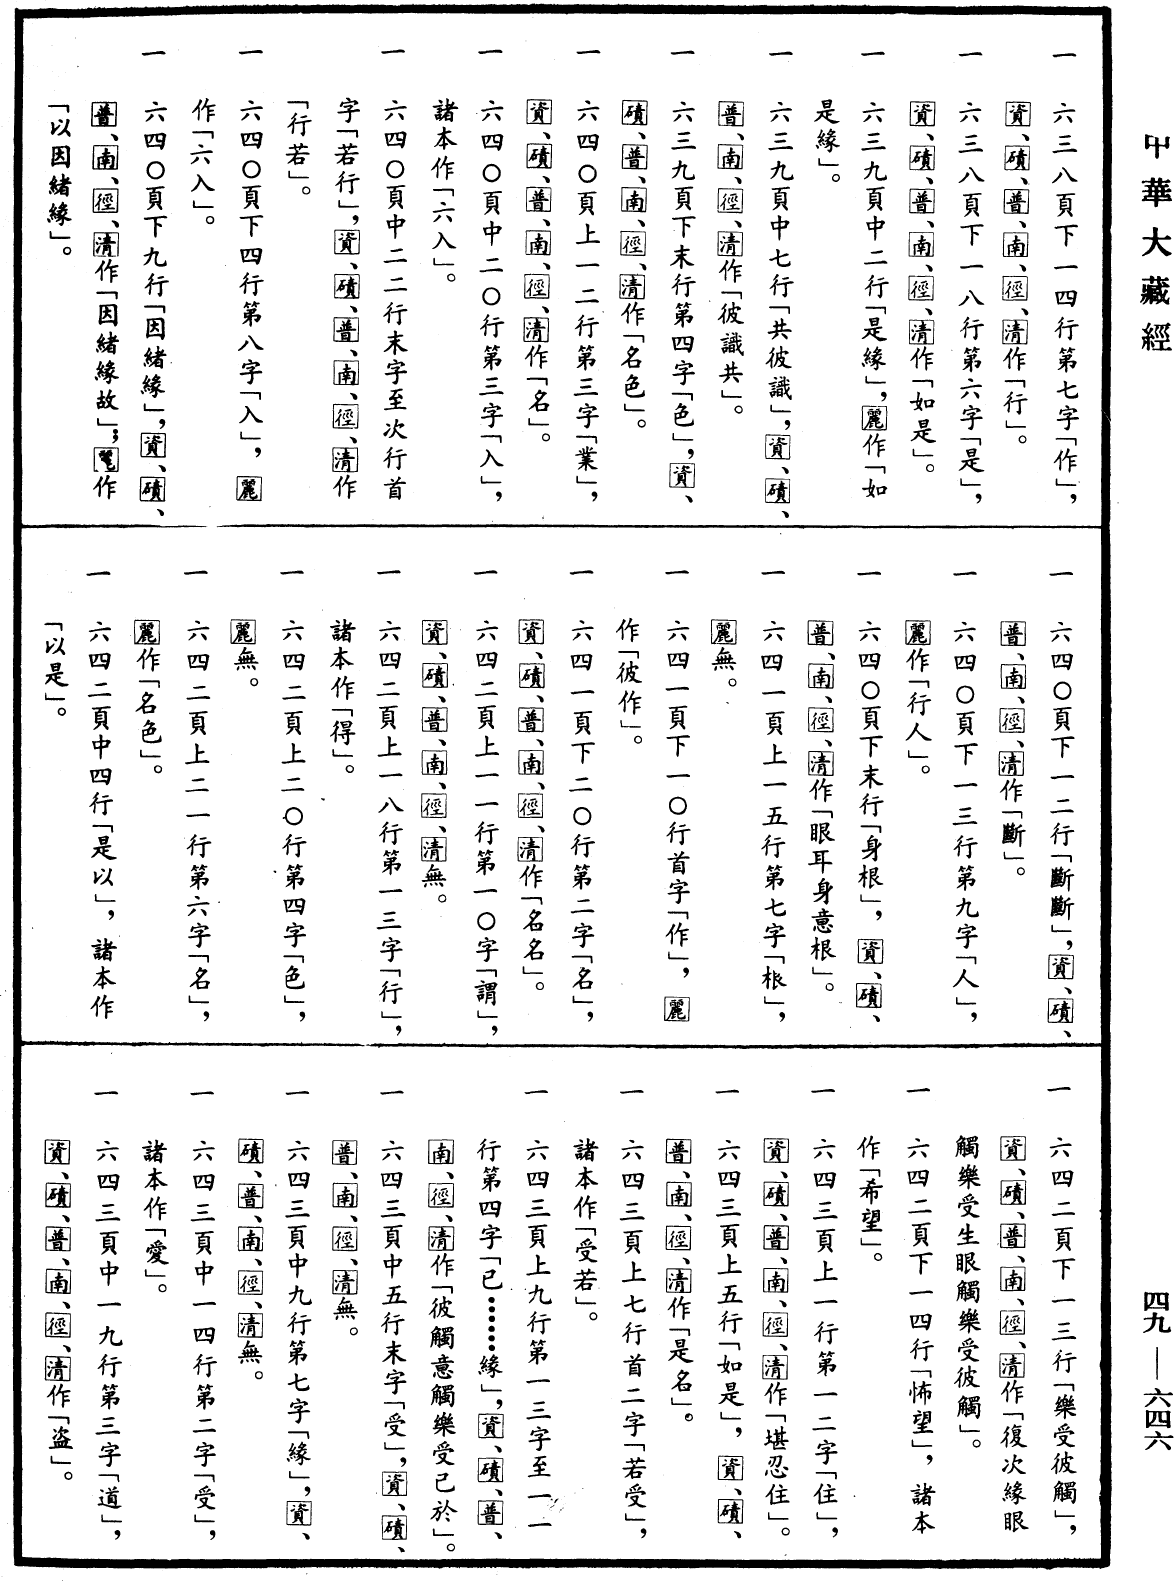 中華大藏經
四九—六四六
一 六三八頁下一四行第七字「作」，
資、磧、普、南、徑、清作「行」。
一 六三八頁下一八行第六字「是」，
資、磧、普、南、徑、清作「如是」。
一 六三九頁中二行「是緣」，麗作「如
是緣」。
一 六三九頁中七行「共彼識」，資、磧、
普、南、徑、清作「彼識共」。
一 六三九頁下末行第四字「色」，資、
磧、普、南、徑、清作「名色」。
一 六四〇頁上一二行第三字「業」，
資、磧、普、南、徑、清作「名」。
一 六四〇頁中二〇行第三字「入」，
諸本作「六入」。
一 六四〇頁中二二行末字至次行首
字「若行」，資、磧、普、南、徑、清作
「行若」。
一 六四〇頁下四行第八字「入」，麗
作「六入」。
一 六四〇頁下九行「因緒緣」，資、磧、
普、南、徑、清作「因緒緣故」；麗作
「以因緒緣」。
一 六四〇頁下一二行「斷斷」，資、磧、
普、南、徑、清作「斷」。
一 六四〇頁下一三行第九字「人」，
麗作「行人」。
一 六四〇頁下末行「身根」，資、磧、
普、南、徑、清作「眼耳身意根」。
一 六四一頁上一五行第七字「根」，
麗無。
一 六四一頁下一〇行首字「作」，麗
作「彼作」。
一 六四一頁下二〇行第二字「名」，
資、磧、普、南、徑、清作「名名」。
一 六四二頁上一一行第一〇字「謂」，
資、磧、普、南、徑、清無。
一 六四二頁上一八行第一三字「行」，
諸本作「得」。
一 六四二頁上二〇行第四字「色」，
麗無。
一 六四二頁上二一行第六字「名」，
麗作「名色」。
一 六四二頁中四行「是以」，諸本作
「以是」。
一 六四二頁下一三行「樂受彼觸」，
資、磧、普、南、徑、清作「復次緣眼
觸樂受生眼觸樂受彼觸」。
一 六四二頁下一四行「怖望」，諸本
作「希望」。
一 六四三頁上一行第一二字「住」，
資、磧、普、南、徑、清作「堪忍住」。
一 六四三頁上五行「如是」，資、磧、
普、南、徑、清作「是名」。
一 六四三頁上七行首二字「若受」，
諸本作「受若」。
一 六四三頁上九行第一三字至一一
行第四字「已……緣」，資、磧、普、
南、徑、清作「彼觸意觸樂受已於」。
一 六四三頁中五行末字「受」，資、磧、
普、南、徑、清無。
一 六四三頁中九行第七字「緣」，資、
磧、普、南、徑、清無。
一 六四三頁中一四行第二字「受」，
諸本作「愛」。
一 六四三頁中一九行第三字「道」，
資、磧、普、南、徑、清作「盜」。